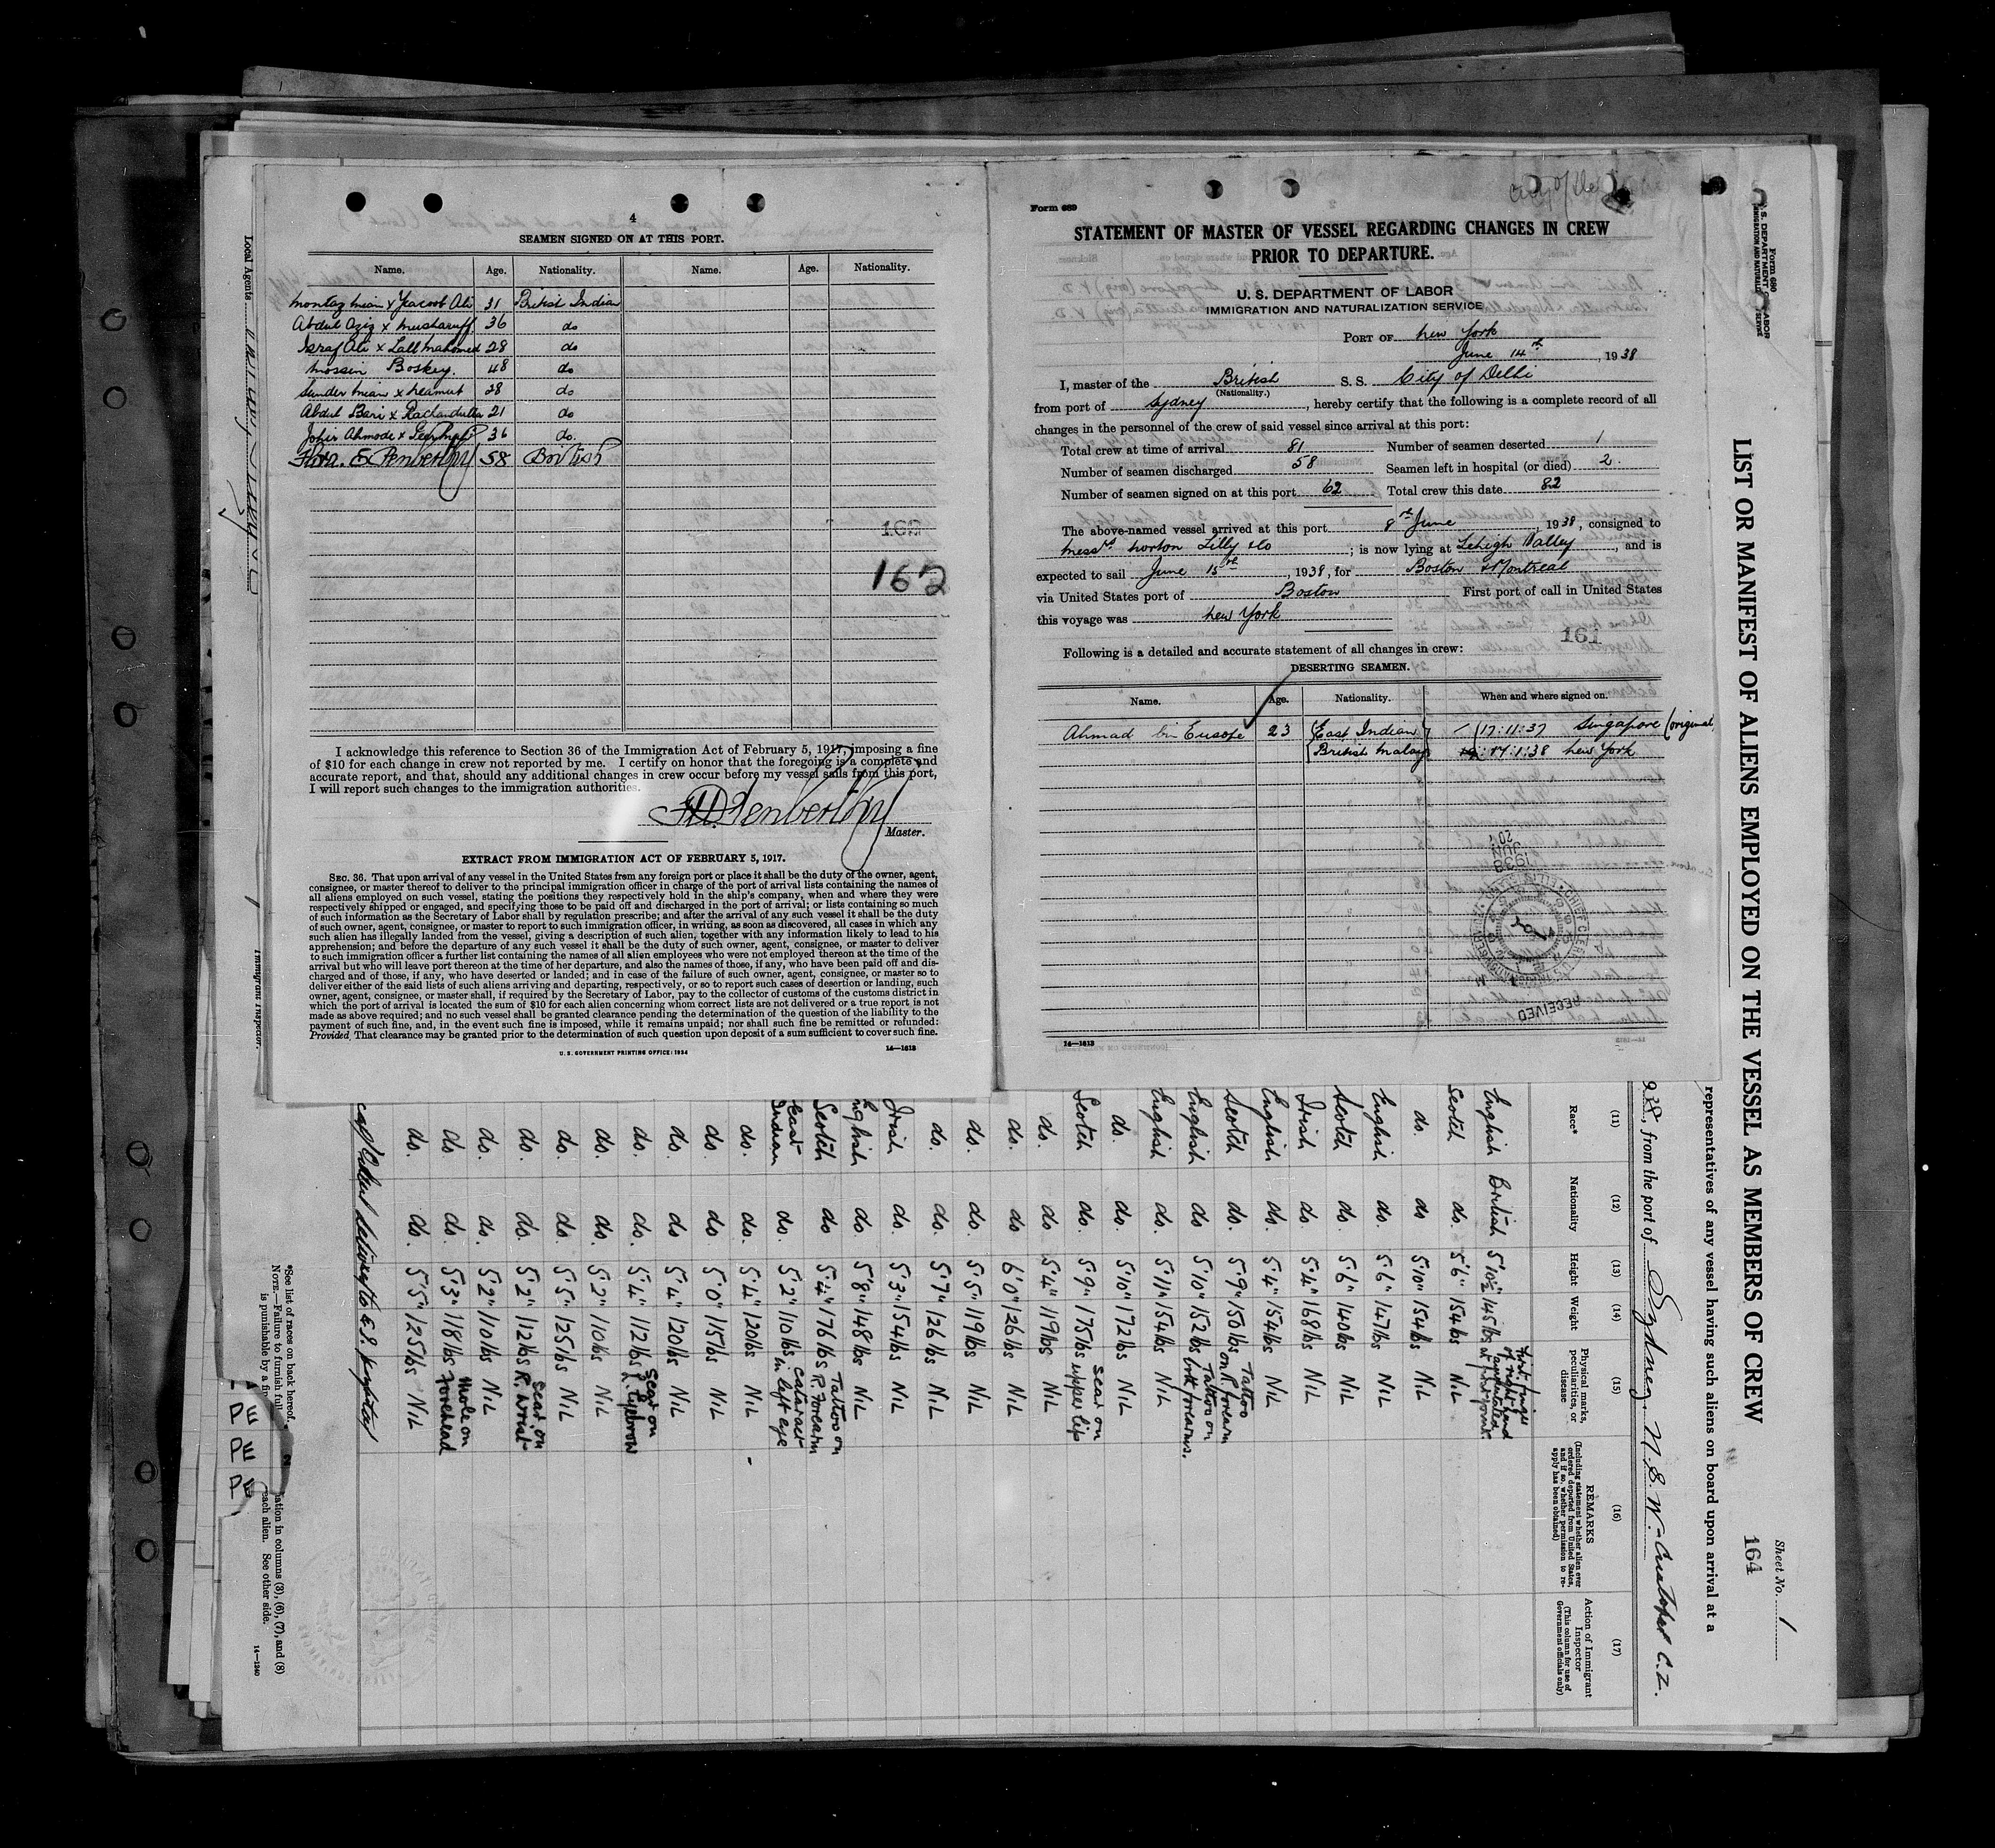 4
SEAMEN SIGNED ON AT THIS PORT.
Name. Age. Nationality. Name. Age. Nationality.
Montaz Mian x Yeacoob Ali 31 British Indian
Abdul Aziz x Musharuff 36 do
Israf Ali x Lall Mahomed 28 do
Mossin Boskey. 48 do
Sunder Mian x Neamut 38 do
Abdul Bari x Rachandulla 21 do
Johir Ahmode x 36 do.
Flora. E. Penberthy 58 British
162
162
I acknowledge this reference to Section 36 of the Immigration Act of February 5, 1917, imposing a fine
of $10 for each change in crew not reported by me. I certify on honor that the foregoing is a complete and
accurate report, and that, should any additional changes in crew occur before my vessel sails from this port,
I will report such changes to the immigration authorities.
Penberthy
Master.
EXTRACT FROM IMMIGRATION ACT OF FEBRUARY 5, 1917.
SEC. 36. That upon arrival of any vessel in the United States from any foreign port or place it shall be the duty of the owner, agent,
consignee, or master thereof to deliver to the principal immigration officer in charge of the port of arrival lists containing the names of
all aliens employed on such vessel, stating the positions they respectively hold in the ship's company, when and where they were
respectively shipped or engaged, and specifying those to be paid off and discharged in the port of arrival; or lists containing so much
of such information as the Secretary of Labor shall by regulation prescribe; and after the arrival of any such vessel it shall be the duty
of such owner, agent, consignee, or master to report to such immigration officer, in writing, as soon as discovered, all cases in which any
such alien has illegally landed from the vessel, giving a description of such alien, together with any information likely to lead to his
apprehension; and before the departure of any such vessel it shall be the duty of such owner, agent, consignee, or master to deliver
to such immigration officer a further list containing the names of all alien employees who were not employed thereon at the time of the
arrival but who will leave port thereon at the time of her departure, and also the names of those, if any, who have been paid off and dis-
charged and of those, if any, who have deserted or landed; and in case of the failure of such owner, agent, consignee, or master so to
deliver either of the said lists of such aliens arriving and departing, respectively, or so to report such cases of desertion or landing, such
owner, agent, consignee, or master, shall, if required by the Secretary of Labor, pay to the collector of customs of the customs district in
which the port of arrival is located the sum of $10 for each alien concerning whom correct lists are not delivered or a true report is not
made as above required; and no such vessel shall be granted clearance pending the determination of the question of the liability to the
payment of such fine, and, in the event such fine is imposed, while it remains unpaid; nor shall such fine be remitted or refunded:
Provided, That clearance may be granted prior to the determination of such question upon deposit of a sum sufficient to cover such fine.
U. S. GOVERNMENT PRINTING OFFICE: 1934 14—1613
Form 689
STATEMENT OF MASTER OF VESSEL REGARDING CHANGES IN CREW
PRIOR TO DEPARTURE.
U. S. DEPARTMENT OF LABOR
IMMIGRATION AND NATURALIZATION SERVICE
PORT OF New York
June 14th, 1938
I, master of the British S. S. City of Delhi
(Nationality.)
from port of Sydney, hereby certify that the following is a complete record of all
changes in the personnel of the crew of said vessel since arrival at this port:
Total crew at time of arrival 81 Number of seamen deserted 1
Number of seamen discharged 58 Seamen left in hospital (or died) 2.
Number of seamen signed on at this port 62 Total crew this date 82
The above-named vessel arrived at this port 8th June, 1938, consigned to
Messrs Norton Lilly & Co; is now lying at Lehigh Valley, and is
expected to sail June 15th, 1938, for Boston & Montreal
via United States port of Boston First port of call in United States
this voyage was New York
161
Following is a detailed and accurate statement of all changes in crew:
DESERTING SEAMEN.
Name. Age. Nationality. When and where signed on.
Ahmad bin Eusope 23 (East Indian) (17:11:37 Singapore (original)
(British Malay 17:1:38 New York
1938
JUN
RECEIVED
14—1613
Local Agents
Immigrant Inspector.
Form 680
U. S. DEPARTMENT OF LABOR
IMMIGRATION AND NATURALIZATION SERVICE
Sheet No. 1
LIST OR MANIFEST OF ALIENS EMPLOYED ON THE VESSEL AS MEMBERS OF CREW 164
representatives of any vessel having such aliens on board upon arrival at a
938, from the port of Sydney, N. S. W. - Cristobal C. Z.
(11) (12) (13) (14) (15) (16) (17)
Race* Nationality Height Weight Physical marks, peculiarities, or disease REMARKS (Including statement whether alien ever ordered deported from United States, and if so, whether permission to re-apply has been obtained) Action of Immigrant Inspector (This column for use of Government officials only)
English British 5'10½" 145 lbs First finger of right hand amputated at first joint.
Scotch do. 5'6" 154 lbs NIL
do. do. 5'10" 154 lbs NIL
English do. 5'6" 147 lbs NIL
Scotch do. 5'6" 140 lbs NIL
Irish do. 5'4" 168 lbs NIL
English do. 5'4" 154 lbs NIL
Scotch do. 5'9" 150 lbs Tattoo on R. forearm
English do 5'10" 152 lbs Tattoo on both forearms.
English do. 5'11" 154 lbs NIL
do. do. 5'10" 172 lbs NIL
Scotch do. 5'9" 175 lbs Scar on upper lip
do. do 5'4" 119 lbs NIL
do. do 6'0" 126 lbs NIL
do. do. 5'5" 119 lbs NIL
do. do. 5'7" 126 lbs NIL
Irish do. 5'3" 154 lbs NIL
English do. 5'8" 148 lbs NIL
Scotch do 5'4" 176 lbs Tattoo on R. Forearm
East Indian do. 5'2" 110 lbs Cataract in left eye
do. do. 5'4" 120 lbs -
do. do. 5'0" 115 lbs NIL
do. do 5'4" 120 lbs NIL
do. do. 5'4" 112 lbs Scar on L. Eyebrow
do. do. 5'2" 110 lbs NIL
do. do. 5'5" 125 lbs NIL
do. do. 5'2" 112 lbs Scar on R. Wrist
do. do. 5'2" 110 lbs NIL
do do. 5'3" 118 lbs Mole on Forehead
do. do. 5'5" 125 lbs NIL
*See list of races on back hereof.
NOTE.—Failure to furnish full
ation in columns (3), (6), (7), and (8)
is punishable by a fine
each alien. See other side.
14—1240